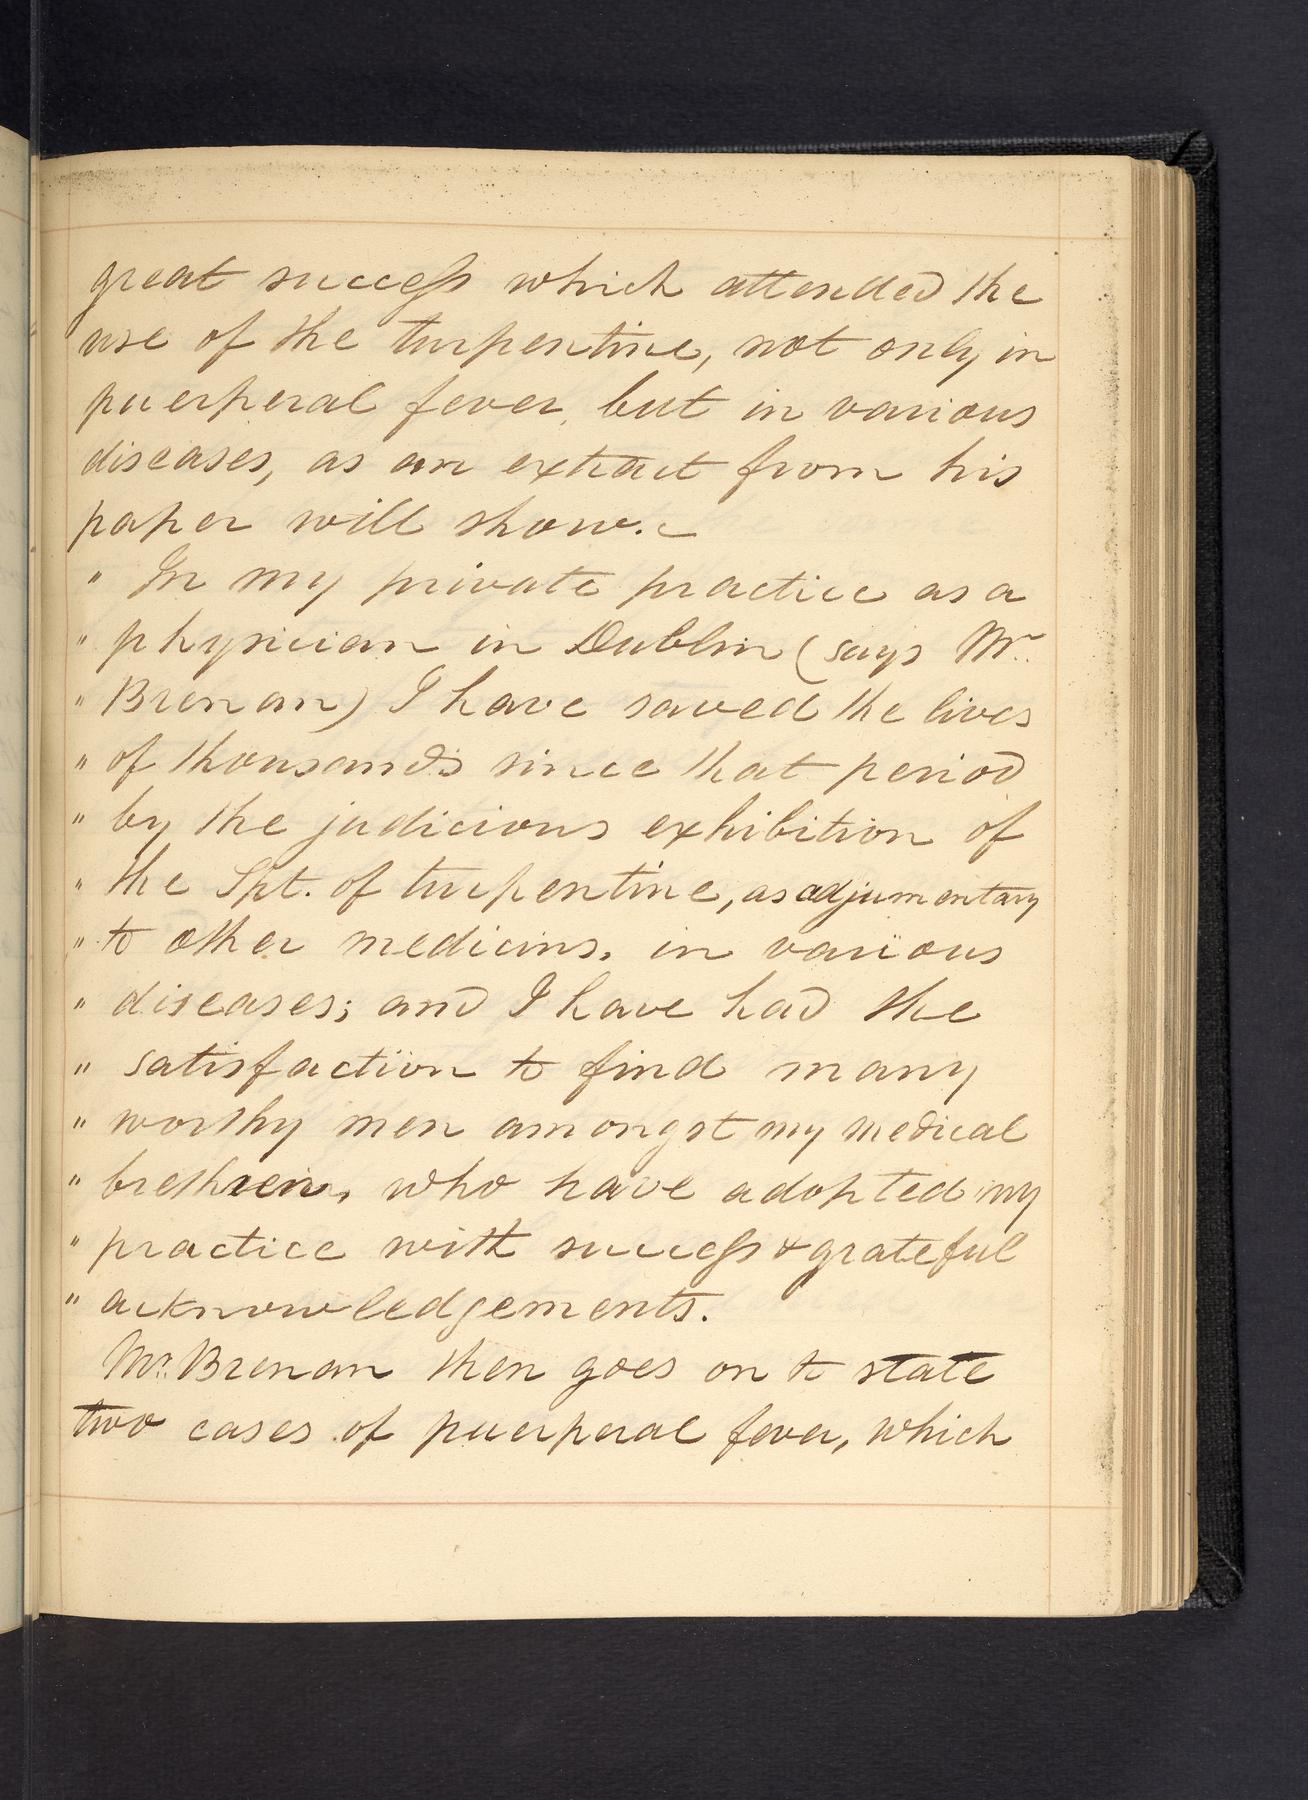 great success which attended the
use of the turpentine, not only in
puerperal fever, but in various
diseases, as an extract from his
paper will show.
" In my private practice as a
" physician in Dublin (says Mr.
" Brenan) I have saved the lives
" of thousands since that period
" by the judicious exhibition of
" the Spt. of turpentine, as adjumentary
" to other medicins, in various
" diseases; and I have had the
" satisfaction to find many
" worthy men amongst my medical
" brethren, who have adopted my
" practice with success & grateful
" acknowledgements.
Mr. Brenan then goes on to state
two cases of puerperal fever, which